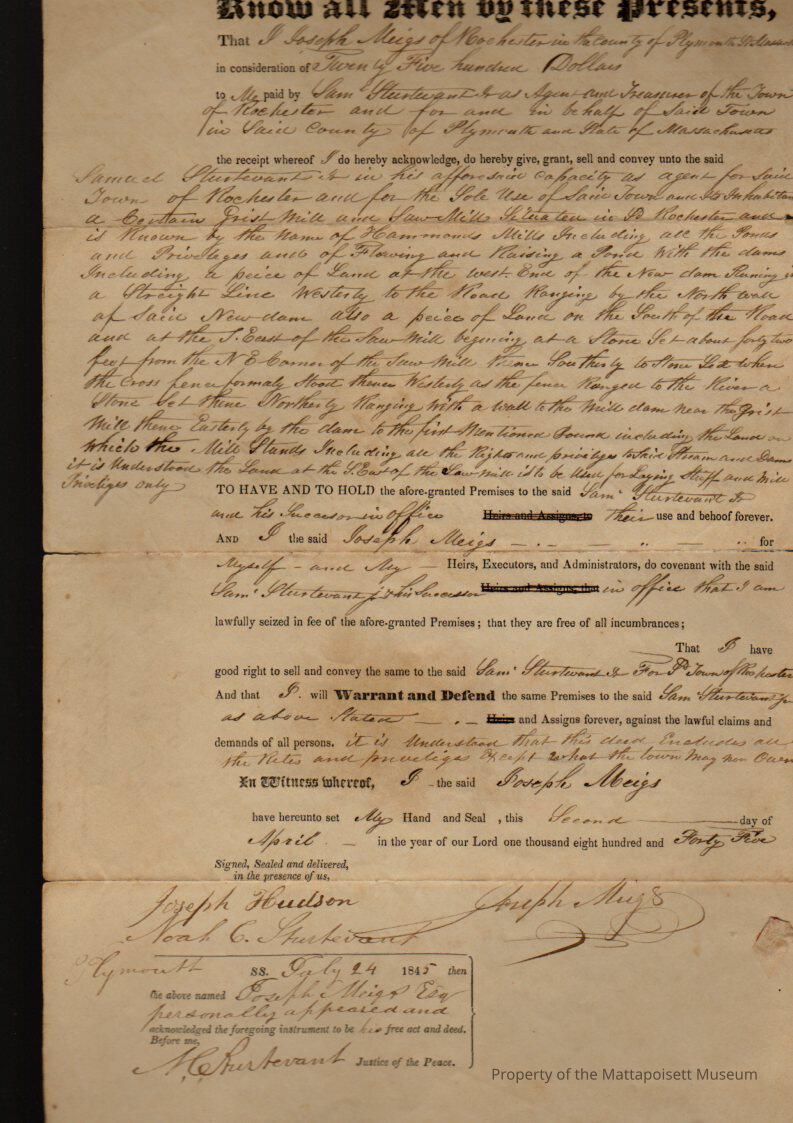 Know all Men by these Presents,
That I Joseph Meigs of Rochester in the County of Plymouth
in consideration of Twenty Five hundred Dollars
to Me paid by Saml Sturtevant Jr as Agent and Treasurer of the Town
of Rochester and for and in behalf of Said Town
in Said County of Plymouth and State of Massachusetts
the receipt whereof I do hereby acknowledge, do hereby give, grant, sell and convey unto the said
Samuel Sturtevant Jr in his afforesaid capacity as agent for Said
Town of Rochester and for the Sole Use of Said Town and Its Inhabitan
a Certain Grist Mill and Saw Mill Situated in Sd Rochester and
is Known by the Name of Hammonds Mills Including all the Ponds
and Privileges and of Flowing and Raising a Pond With the dams
Including a peice of Land at the west End of the New dam Runing
a Streight Line Westerly to the Road Ranging by the North wall
of Said New dam also a peice of Land on the South of the Road
and at the S. East of the Saw Mill begining at a Stone Set about forty two
feet from the N E Corner of the Saw Mill thence Southerly to Stone Set where
the Cross fence formaly Stood thence Westerly as the fence Ranged to the River a
Stone Set thence Northerly Ranging With a wall to the Mill dam near the Grist
Mill thence Easterly by the dam to the first Mentioned Bound including the Land on
which the Mill Stands Including all the Rights and priviliges to Said Stream and Dams
it is Understood the Land at the S. East of the Saw Mill is to be Used for Laying Stuff and Mill
Priveliges only
TO HAVE AND TO HOLD the afore-granted Premises to the said Saml Sturtevant Jr
and his Successor in office Heirs and Assigns, to their use and behoof forever.
AND I the said Joseph Meigs for
Myself - and My Heirs, Executors, and Administrators, do covenant with the said
Saml Sturtevant jr & his Successor Heirs and Assigns, that in office that I am
lawfully seized in fee of the afore-granted Premises; that they are free of all incumbrances;
That I have
good right to sell and convey the same to the said Saml Sturtevant Jr For Sd Town of Rochester
And that I will Warrant and Defend the same Premises to the said Saml Sturtevant jr
as above Stated Heirs and Assigns forever, against the lawful claims and
demands of all persons. it is Understood that this deed Encludes all
the Rites and priveliges Except what the town may now Own
In Witness whereof, I the said Joseph Meigs
have hereunto set My Hand and Seal, this Second day of
April in the year of our Lord one thousand eight hundred and Forty Five
Signed, Sealed and delivered,
in the presence of us,
Joseph Hudson Joseph Meigs
Noah C. Sturtevant
Plymouth ss. July 24 1845 then
the above named Joseph Meigs Esq
personally appeared and
acknowledged the foregoing instrument to be his free act and deed.
Before me,
Sturtevant Justice of the Peace.
Property of the Mattapoisett Museum